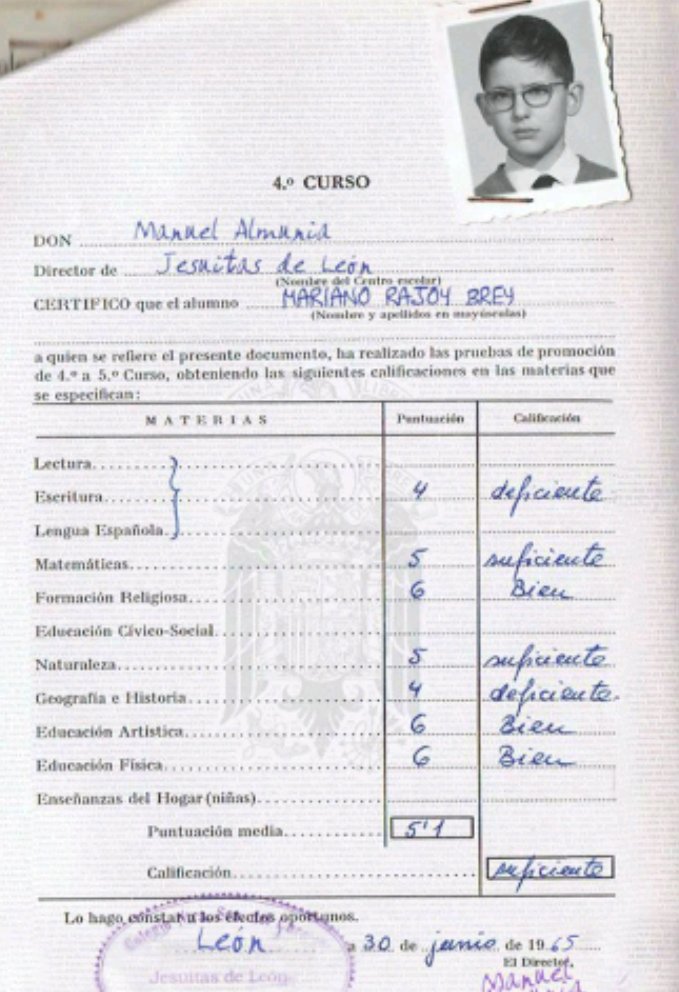 4.º CURSO
DON Manuel Almunia
Director de Jesuitas de León
(Nombre del Centro escolar)
CERTIFICO que el alumno MARIANO RAJOY BREY
(Nombre y apellidos en mayúsculas)
a quien se refiere el presente documento, ha realizado las pruebas de promoción
de 4.º a 5.º Curso, obteniendo las siguientes calificaciones en las materias que
se especifican:
MATERIAS Puntuación Calificación
Lectura
Escritura 4 deficiente
Lengua Española
Matemáticas 5 suficiente
Formación Religiosa 6 Bien
Educación Cívico-Social
Naturaleza 5 suficiente
Geografía e Historia 4 deficiente.
Educación Artística 6 Bien
Educación Física 6 Bien
Enseñanzas del Hogar (niñas)
Puntuación media 5'1
Calificación suficiente
Lo hago constar a los efectos oportunos.
León a 30 de junio de 1965
El Director,
Jesuitas de León
Manuel